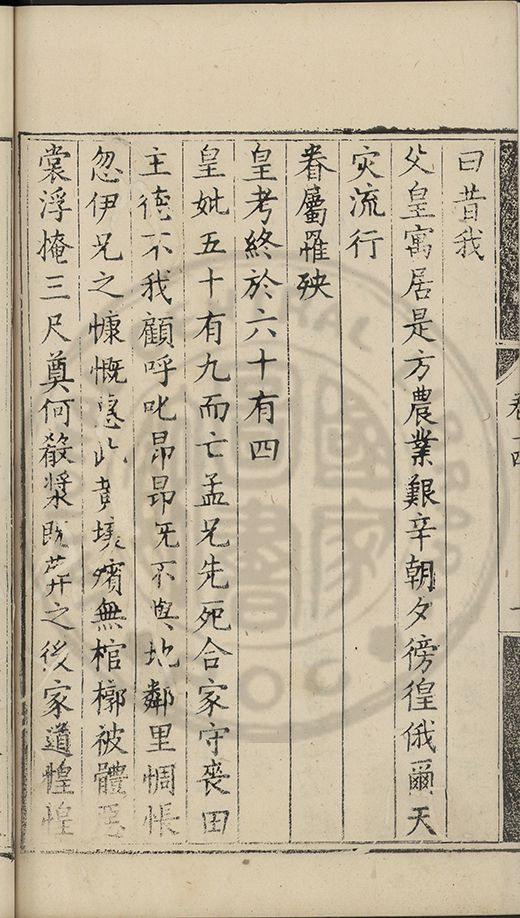 卷十四
一
曰昔我
父皇寓居是方農業艱辛朝夕徬徨俄爾天
灾流行
眷屬罹殃
皇考終於六十有四
皇妣五十有九而亡孟兄先死合家守喪田
主德不我顧呼叱昂昂旡不與地鄰里惆悵
忽伊兄之慷慨惠此黄壤殯無棺槨被體惡
裳浮掩三尺奠何殽漿既葬之後家道惶惶